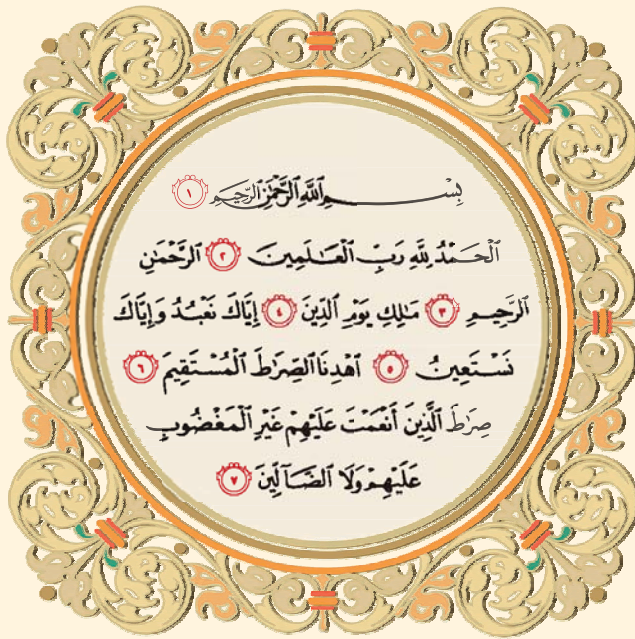 بِسْمِ اللَّهِ الرَّحْمَٰنِ الرَّحِيمِ ١
الْحَمْدُ لِلَّهِ رَبِّ الْعَٰلَمِينَ ٢ الرَّحْمَٰنِ
الرَّحِيمِ ٣ مَٰلِكِ يَوْمِ الدِّينِ ٤ إِيَّاكَ نَعْبُدُ وَإِيَّاكَ
نَسْتَعِينُ ٥ اهْدِنَا الصِّرَٰطَ الْمُسْتَقِيمَ ٦
صِرَٰطَ الَّذِينَ أَنْعَمْتَ عَلَيْهِمْ غَيْرِ الْمَغْضُوبِ
عَلَيْهِمْ وَلَا الضَّآلِّينَ ٧